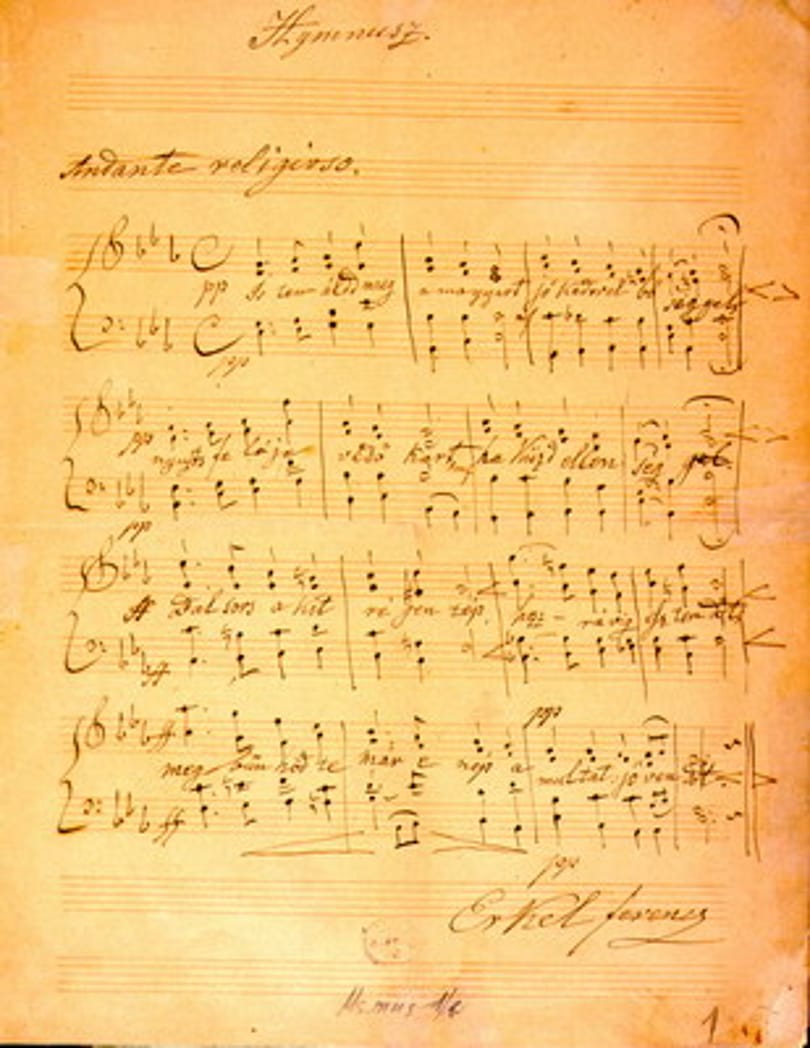 Hymnusz.
Andante religioso.
pp Is ten áldd meg a magyart jó kedvvel bő seggel
pp
pp nyujts fe léje védő kart, ha küzd ellen seg gel
pp
ff Bal sors a kit ré gen tép, hoz - rá víg Esz ten dőt
ff
ff pp
meg bűn hőd te már e nép a multat jö ven dőt
ff
pp
Erkel ferencz
Ms. mus
1